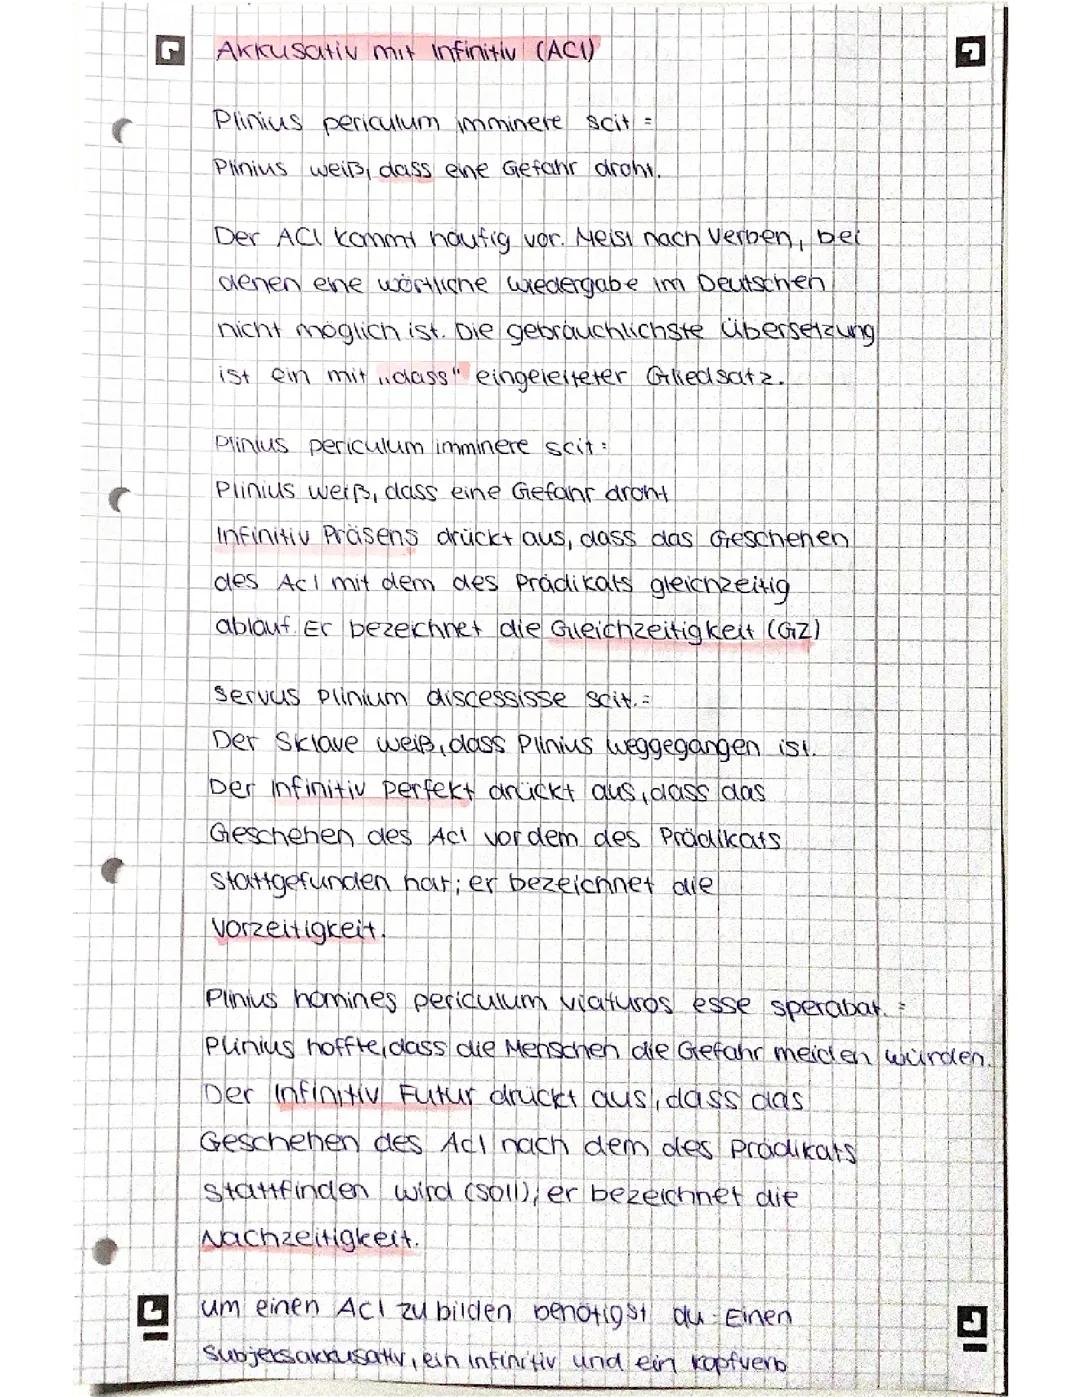 Akkusativ mit Infinitiv (ACI)
Plinius periculum imminere scit =
Plinius weiß, dass eine Gefahr droht.
Der ACI kommt häufig vor. Meist nach Verben, bei
denen eine wörtliche Wiedergabe im Deutschen
nicht möglich ist. Die gebräuchlichste Übersetzung
ist ein mit „dass" eingeleiteter Gliedsatz.
Plinius periculum imminere scit:
Plinius weiß, dass eine Gefahr droht
Infinitiv Präsens drückt aus, dass das Geschehen
des ACI mit dem des Prädikats gleichzeitig
ablauf. Er bezeichnet die Gleichzeitigkeit (GZ)
Servus Plinium discessisse scit.=
Der Sklave weiß, dass Plinius weggegangen ist.
Der Infinitiv Perfekt drückt aus, dass das
Geschehen des ACI vor dem des Prädikats
stattgefunden hat; er bezeichnet die
Vorzeitigkeit.
Plinius homines periculum viaturos esse sperabat. =
Plinius hoffte, dass die Menschen die Gefahr meiden würden.
Der Infinitiv Futur drückt aus, dass das
Geschehen des ACI nach dem des Prädikats
stattfinden wird (soll); er bezeichnet die
Nachzeitigkeit.
um einen ACI zu bilden benötigst du: Einen
Subjeksakkusativ, ein Infinitiv und ein Kopfverb